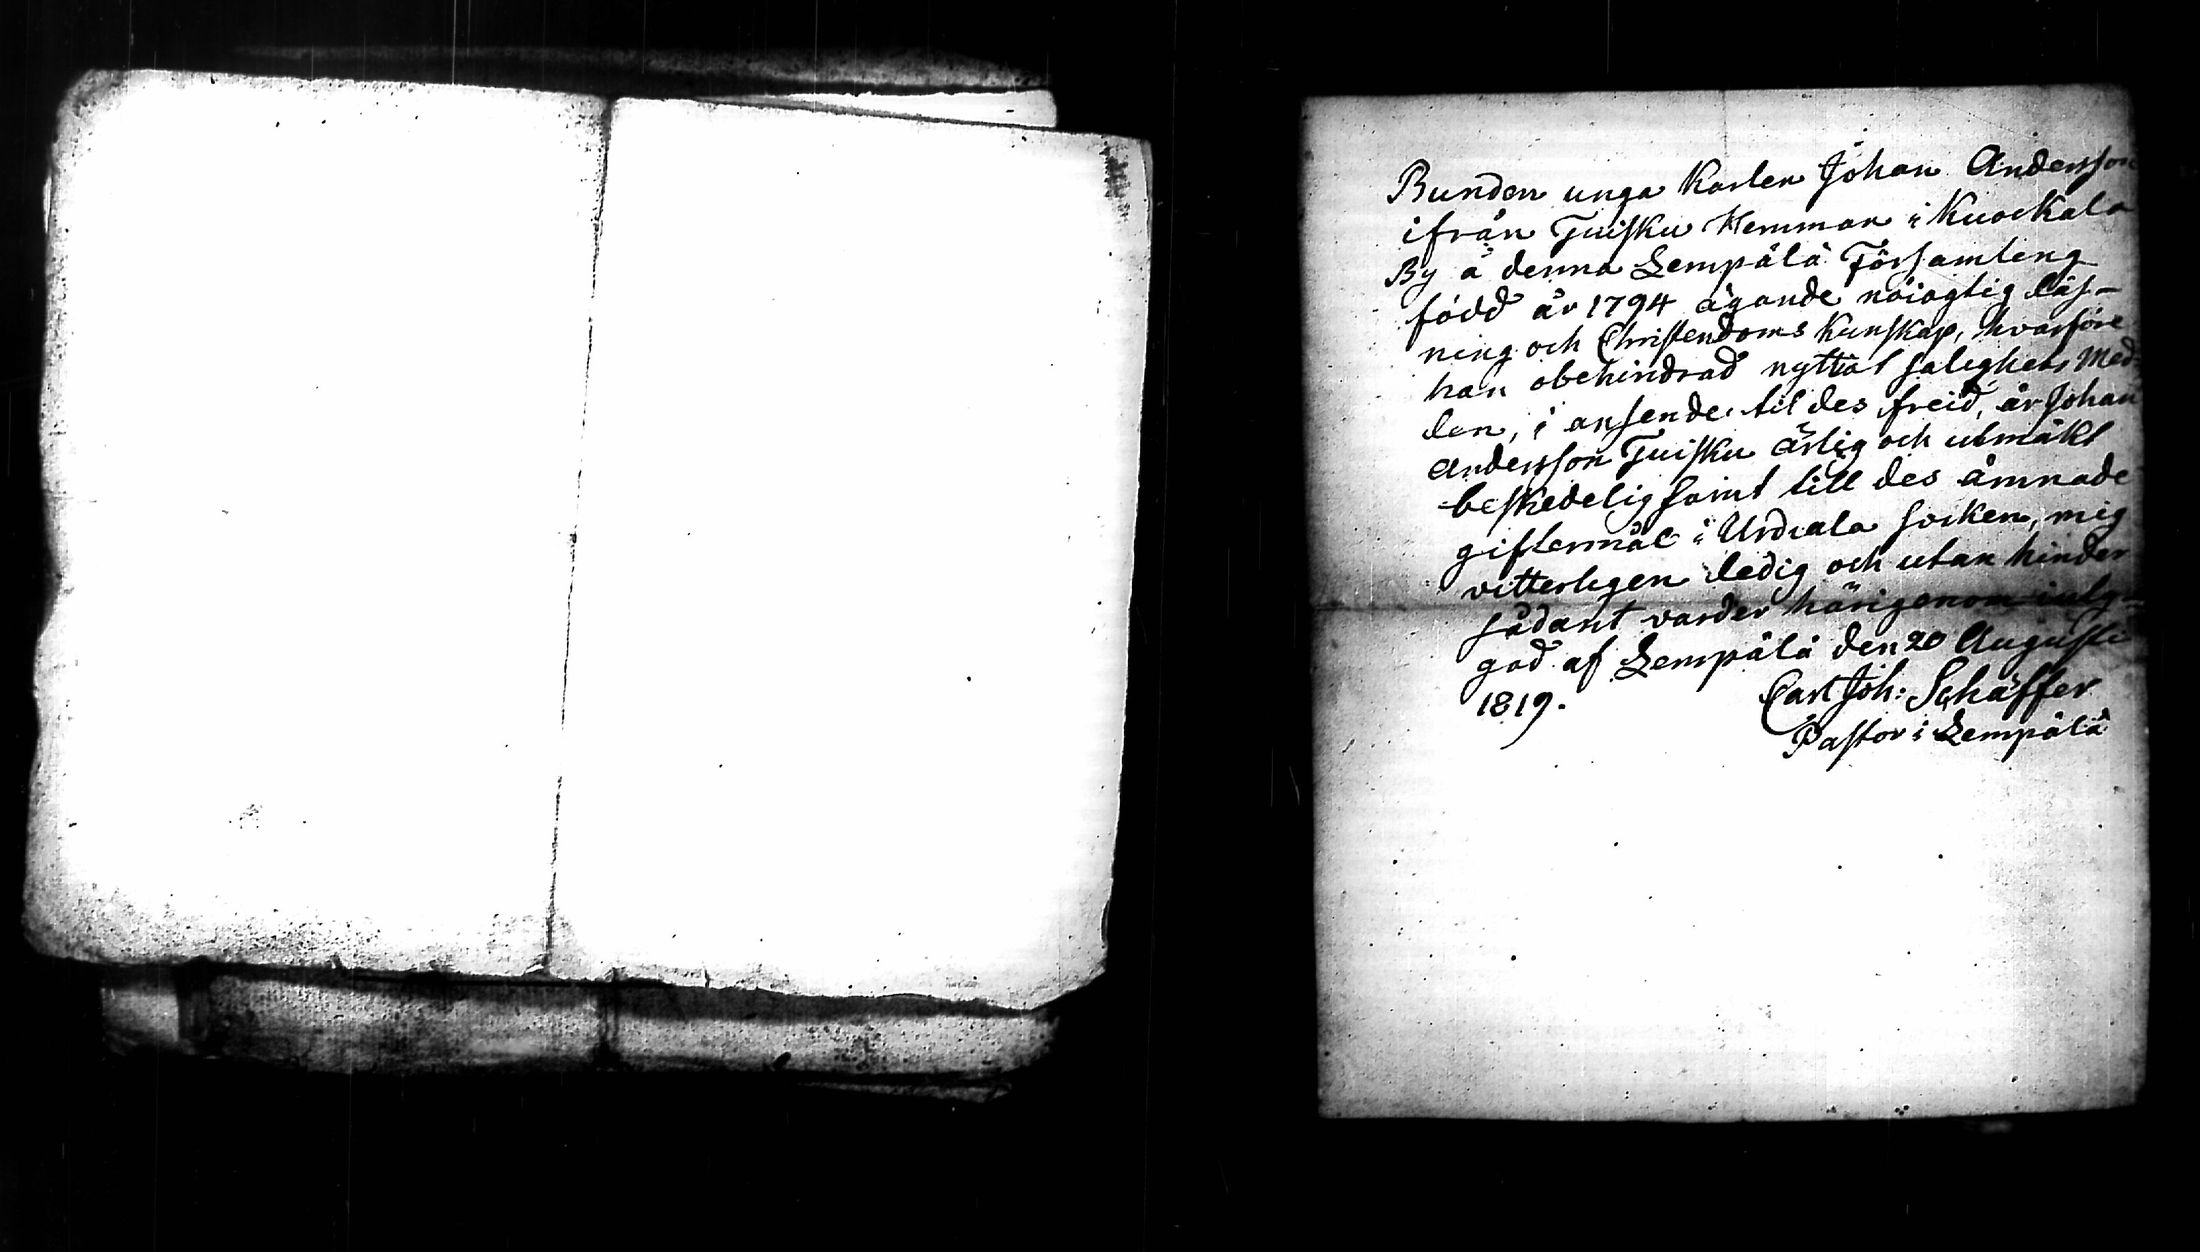 Bunden unga Karlen Johan Andersson
ifrån Tuisku Hemman i Kuockala
By å denna Lempälä Församling
född år 1794 ägande nöiagtig läs-
ning och Christendoms kunskap, hvarföre
han obehindrad nyttat salighets Med-
len, i anseende til des freid, är Johan
Andersson Tuisku ärlig och utmäkt
beskedelig samt till des ämnade
giftermål i Urdiala socken, mig
vitterligen ledig och utan hinder
sådant varder härigenom
gad af Lempälä den 20 Augusti
1819.
Carl Joh: Schäffer
Pastor i Lempälä